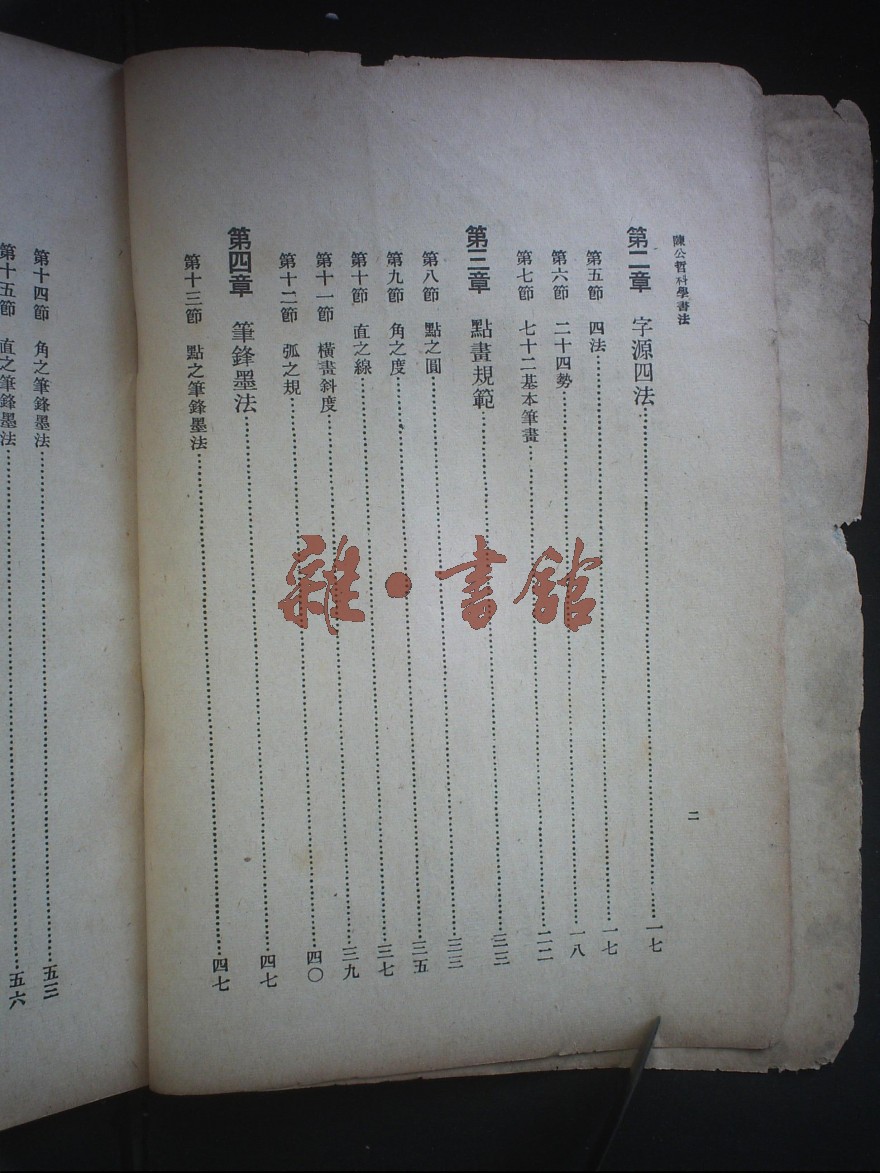 陳公哲科學書法
二
第二章 字源四法……一七
第五節 四法……一七
第六節 二十四勢……一八
第七節 七十二基本筆畫……二二
第三章 點畫規範……三三
第八節 點之圓……三三
第九節 角之度……三五
第十節 直之線……三七
第十一節 橫畫斜度……三九
第十二節 弧之規……四〇
第四章 筆鋒墨法……四七
第十三節 點之筆鋒墨法……四七
第十四節 角之筆鋒墨法……五三
第十五節 直之筆鋒墨法……五六
雜·書館